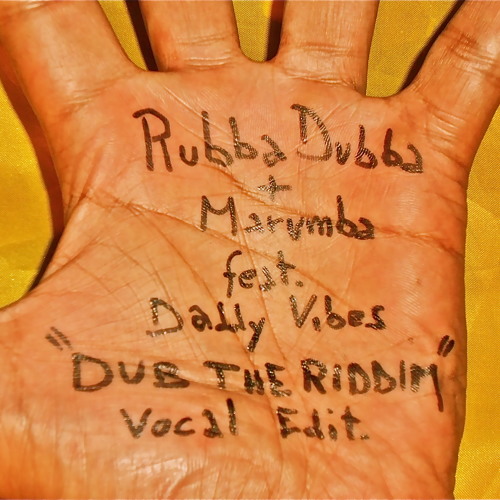 Rubba Dubba
+
Marumba
feat.
Daddy Vibes
"DUB THE RIDDIM"
Vocal Edit.